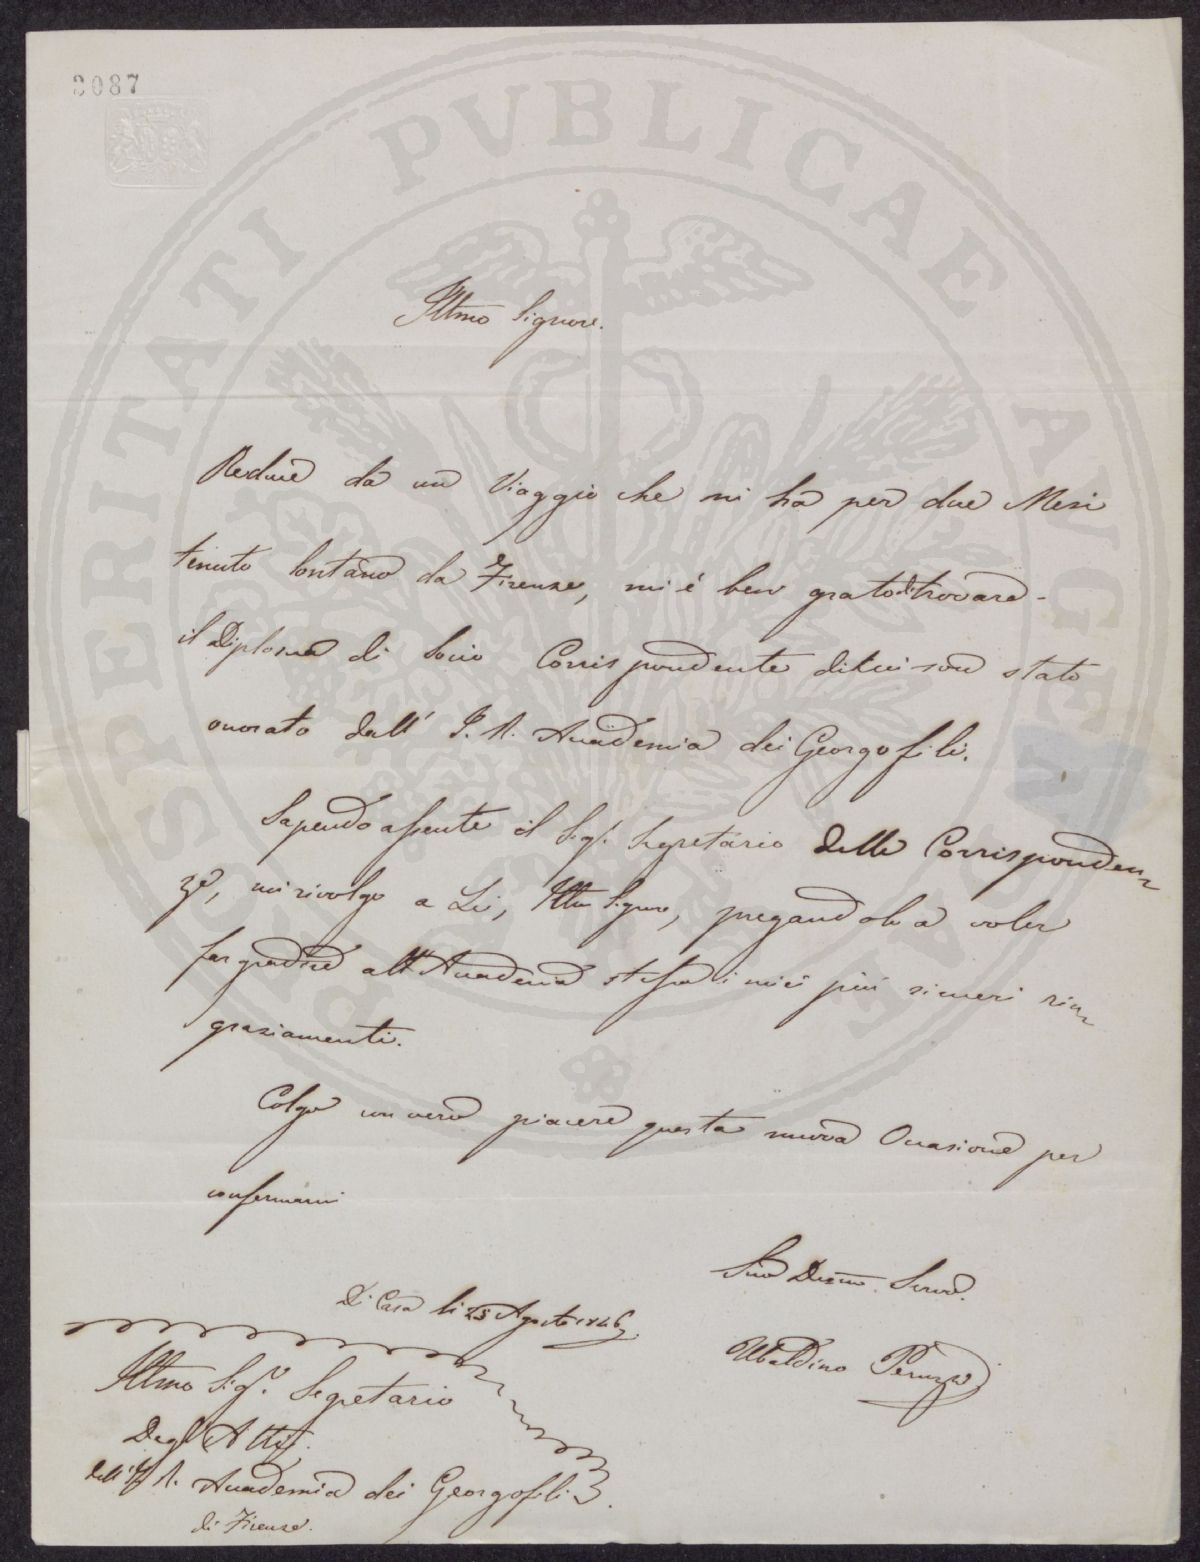 3087
PROSPERITATI PVBLICAE AVGENDAE
Illmo Signore.
Reduce da un Viaggio che mi ha per due Mesi
tenuto lontano da Firenze, mi è ben grato di trovare
il Diploma di Socio Corrispondente di cui son stato
onorato dall' I. R. Accademia dei Georgofili.
Sapendo assente il Sigr. Segretario delle Corrisponden-
ze, mi rivolgo a Lei, Illmo Signore, pregandola a voler
far gradire all'Accademia stessa i miei più sinceri rin-
graziamenti.
Colgo con vero piacere questa nuova Occasione per
confermarmi
Suo Devmo. Servo.
Di Casa li 25 Agosto 1846
Ubaldino Peruzzi
Illmo Sigr. Segretario
Degli Atti
dell'I. R. Accademia dei Georgofili
di Firenze.